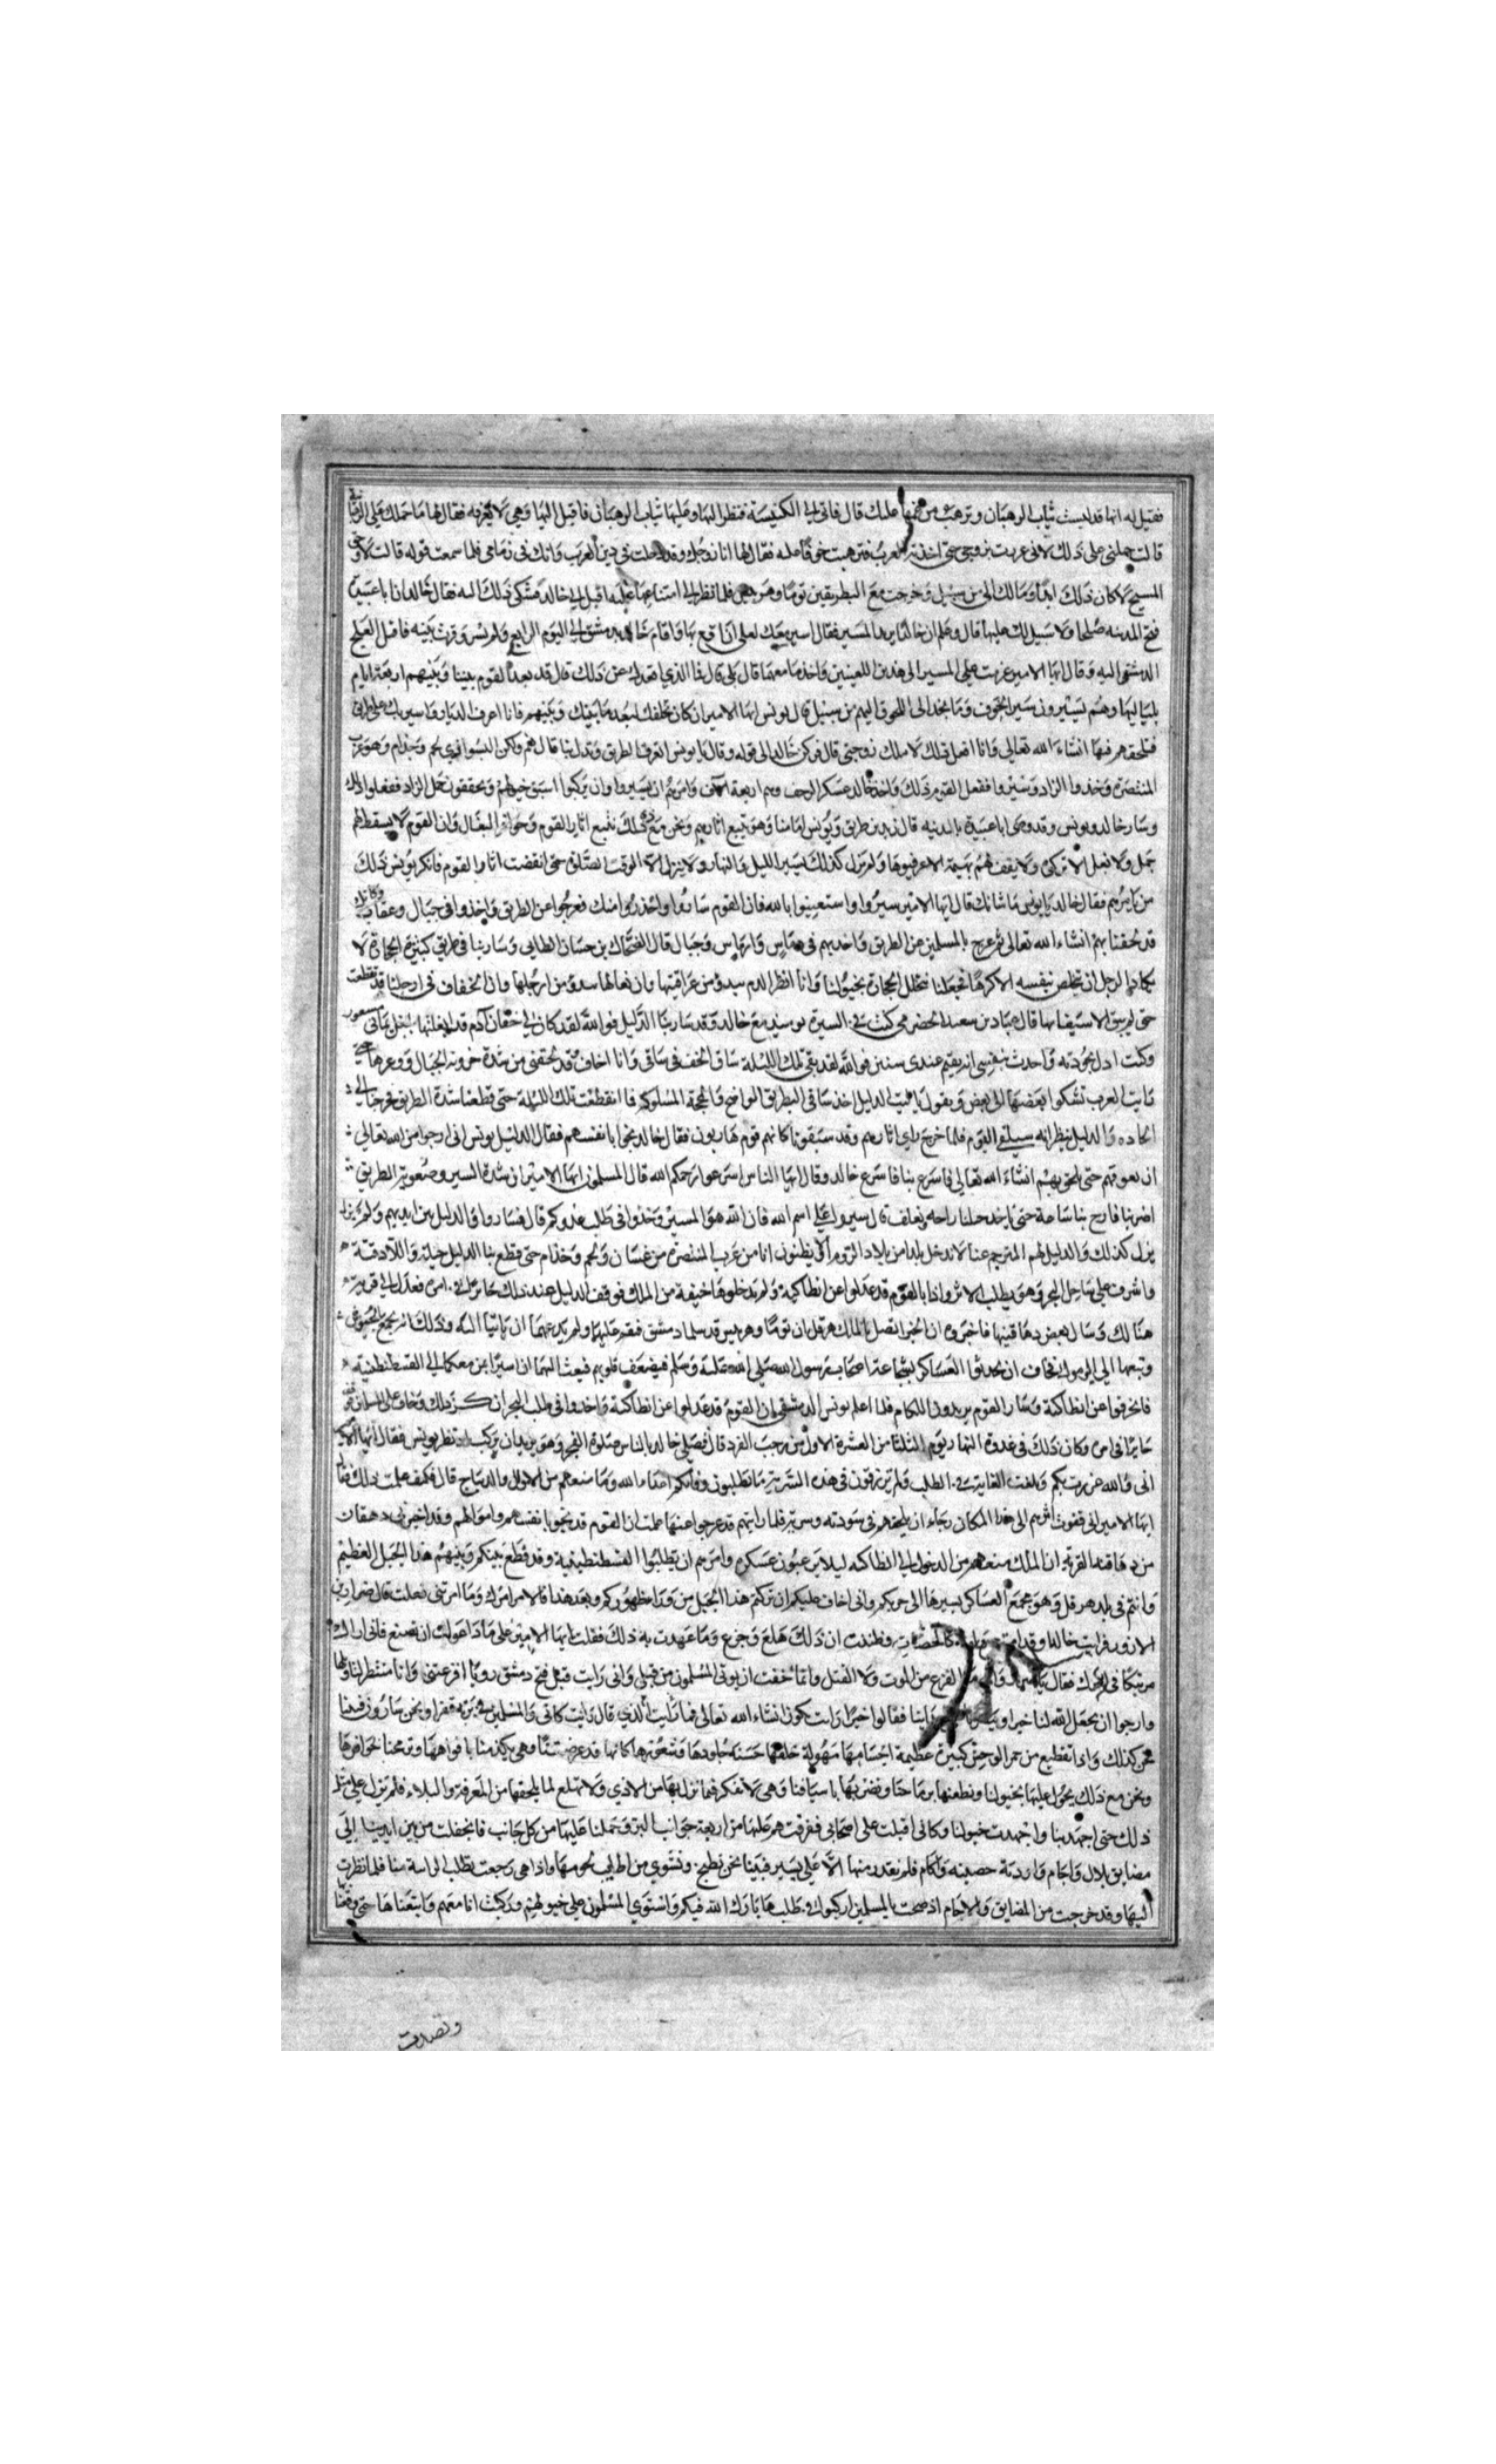 فقيل له انها قد لبست ثياب الرهبان وترهبت من غمها عليك قال فاتى الي الكنيسة فنظر اليها وعليها ثياب الرهبان فاقبل اليها وهي لا تعرفه فقال لها ما حملك على الرهبانية
قالت حملني على ذلك لاني غررت بزوجي حتى اخذته العرب فترهبت خوفا عليه فقال لها انا زوجك وقد دخلت في دين العرب وانك في ذمامي فلما سمعت قوله قالت لا وحق
المسيح لا كان ذلك ابدا وما لك الي من سبيل وخرجت مع البطريقين توما وهربيس فلما نظر الي امتناعها عليه اقبل الي خالد فشكى ذلك اليه فقال خالد ان ابا عبيدة
فتح المدينه صلحا ولا سبيل لك عليها قال وعلم ان خالدا يريد المسير فقال اسير معك لعلى ان اقع بها واقام خالد بدمشق الي اليوم الرابع ولم يسر وقرت بمنيه فاقبل العلج
الدمشقي اليه وقال ايها الامير عزمت على المسير الى هذين اللعينين واخذ ما معهما قال بلى قال فما الذي اقعدك عن ذلك قال قد بعد القوم بيننا وبينهم اربعة ايام
بلياليها وهم يسيرون سير الخوف وما نجد الى اللحوق اليهم من سبيل قال يونس ايها الامير ان كان تخلفك لبعد ما بينك وبينهم فانا اعرف الديار واسير بك على طريق
فنلحقهم فيها انشاء الله تعالي وانا افعل ذلك لاملك زوجتي قال فركن خالد الى قوله وقال يا يونس اتعرف الطريق وتدل بنا قال نعم ولكن البسوا زي لخم وجذام وهو عرب
المتنصرة وخذوا الزاد وسيروا ففعل القوم ذلك واخذ خالد عسكر الزحف وهم اربعة الاف وامرهم ان يسيروا وان يركبوا اسبق خيولهم ويخففون حمل الزاد ففعلوا ذلك
وسار خالد ويونس وقد وصى ابا عبيدة بالمدينه قال زيد بن طريق ويونس امامنا وهو يتبع اثارهم ونحن مع ذلك نتبع اثار القوم وحوافر البغال وان القوم لا يسقط لهم
جمل ولا بغل الا تركوه ولا يقف لهم بهيمة الا عرقبوها ولم نزل كذلك نسير الليل والنهار ولا ننزل الا الوقت الصلوة حتى انقضت اثار القوم فانكر يونس ذلك
من تاثرهم فقال خالد يا يونس ما شانك قال ايها الامير سيروا واستعينوا بالله فان القوم ساروا واحذروا منك فعرجوا عن الطريق واخذوا في جبال وعقاب وكانك
قد لحقنا بهم انشاء الله تعالى ثم عرج بالمسلمين عن الطريق واخذ بهم في وجبال قال الضحاك بن حسان الطائي وسار بنا في طريق كثيرة الحجارة لا
يكاد الرجل ان يخلص بنفسه الا كرها فجعلنا نتخلل الحجارة بخيولنا وانا انظر الدم يبدو من عراقيبها وان نعالها يبدو من ارجلها وان الخفاف في ارجلنا قد تقطعت
حتى لم يبق الا سيقانها قال عباد بن سعيد الحضرمي كنت في السيرة يومئذ مع خالد وقد سار بنا الدليل فوالله لقد كان لي خفان ادم قد انعلتها بنعل يماني
وكنت ادل بجودته واحدث بنفسي انه يقيم عندي سنين فوالله لقد بقي تلك الليلة ساق الخف في ساقي وانا اخاف وقد لحقني من شدة حزونه الجبال ووعرها حتى
رايت العرب تشكوا بعضها الى بعض ويقول يا ليت الدليل اخذ ساقي الطريق الواضح والمحجة المسلوكه فما انقطعت تلك الليله حتى قطعنا شدة الطريق فخرجنا الي
الجاده والدليل يظن انه سيلقى القوم فلما خرج راي اثارهم وقد سبقونا كانهم قوم هاربون فقال خالد نجوا بانفسهم فقال الدليل يونس اني ارجوا من الله تعالى
ان يعوقهم حتى نلحق بهم انشاء الله تعالي فاسرع بنا فاسرع خالد وقال ايها الناس اسرعوا رحمكم الله قال المسلمون ايها الامير ان شدة السير وصعوبة الطريق
اضر بنا فارح بنا ساعة حتى ياخذ خيلنا راحه ونعلف قال سيروا على اسم الله فان الله هو المسير وخذوا في طلب عدوكم قال فساروا والدليل بين ايديهم ولم يزل
يزل كذلك والدليل لهم المترجم عنا لا ندخل بلدا من بلاد الروم الا يظنون انا من عرب المتنصرة من غسان ولخم وجذام حتى قطع بنا الدليل جبلة واللاذقية
واشرف على ساحل البحر وهو يطلب الاثر واذا بالقوم قد عدلوا عن انطاكية ولم يدخلوها خيفة من الملك فوقف الدليل عند ذلك حائرا في امره فعدل الي قرية
هنالك وسال بعض دهاقينها فاخبروه ان الخبر اتصل بالملك هرقل ان توما وهربيس قد سلما دمشق فنقم عليهما ولم يدعهما ان ياتيا اليه وذلك انه يجمع الجيوش
وتبعها الي اليرموك فخاف ان يحدثوا العساكر بشجاعة اصحاب رسول الله صلى الله عليه وسلم فيضعف قلوبهم فبعث اليهما ان اسيرا بمن معكما الي القسطنطنية
فانحرفوا عن انطاكية وسار القوم يريدون اللكام فلما اعلم يونس الدمشقي ان القوم قد عدلوا عن انطاكية واخذوا في طلب البحر انكر ذلك وخاف على المسلمين فوقف
حايرا في امره وكان ذلك في غدوة النهار يوم الثلثا من العشرة الاول من رجب الفرد قال فصلى خالد بالناس صلوة الفجر وهو يريد ان يركب اذ نظر يونس فقال ايها الامير
اني والله غررت بكم وبلغت الغاية في الطلب ولم ترزقون في هذه السرية ما تطلبون وفاتكم اعداء الله وما معهم من الاموال والديباج قال وكيف علمت ذلك فقال
ايها الامير اني قفوت اثرهم الى هذا المكان رجاء ان نلحقهم في سورية فلما رايتهم قد عرجوا عنها علمت ان القوم قد نجوا بانفسهم واموالهم وقد اخبرني دهقان
من دهاقنة القرية ان الملك منعهم من الدخول الي انطاكيه ليلا يرعبون عسكره وامرهم ان يطلبوا القسطنطينية وقد قطع بينكم وبينهم هذا الجبل العظيم
وانتم في بلد هرقل وهو مجمع العساكر يسيرها الى حربكم واني اخاف عليكم ان تركتم هذا الجبل من وراء ظهوركم وبعد هذا فالامر امرك وما امرتني فعلت قال ضرار بن
الازور فرايت خالدا وقد كالخضاب وظننت ان ذلك هلع وجزع وما عهدت به ذلك فقلت ايها الامير على ماذا عولت ان تصنع فاني اراك
مرتبكا في امرك فقال يا ضرار والله ما الفزع من الموت ولا القتل وانما خفت ان يوتى المسلمون من قبلي واني رايت قبل فتح دمشق رويا افزعتني وانا منتظر لتاويلها
وارجوا ان يجعل الله لنا خيرا فقالوا خيرا رايت يكون انشاء الله تعالى فما رايت الذي قال رايت كاني والمسلمين في برية قفرا ونحن سايرون فبينا
نحن كذلك واذا بقطيع من حمر الوحش كبيرة عظيمة اجسامها مهولة خلقها حسنة جلودها وهي تكدمنا بافواهها وترمحنا بحوافرها
ونحن مع ذلك نحول عليها بخيولنا ونطعنها برماحنا ونضربها باسيافنا وهي لا تفكر فيما نزل بها من الاذي ولا تهلع لما يلحقها من المعرفة والبلاء فلم نزل على مثل
ذلك حتى اجتهدنا واجتهدت خيولنا وكاني اقبلت على اصحابي ففرقتهم عليها من اربعة جوانب البر وحملنا عليها من كل جانب فانجفلت من بين ايدينا الى
مضايق وتلال واجام واودية حصينه واكام فلم نقدر منها الا على يسير فبينا نحن نطبخ ونشوي من اطايب لحومها واذا هي رجعت تطلب منا فلما نظرت
اليها وقد خرجت من المضايق والاجام اذ صحت بالمسلمين اركبوا في طلبها بارك الله فيكم واستوى المسلمون على خيولهم وركبت انا معهم واتبعناها حتى وقعنا
وتصدفت